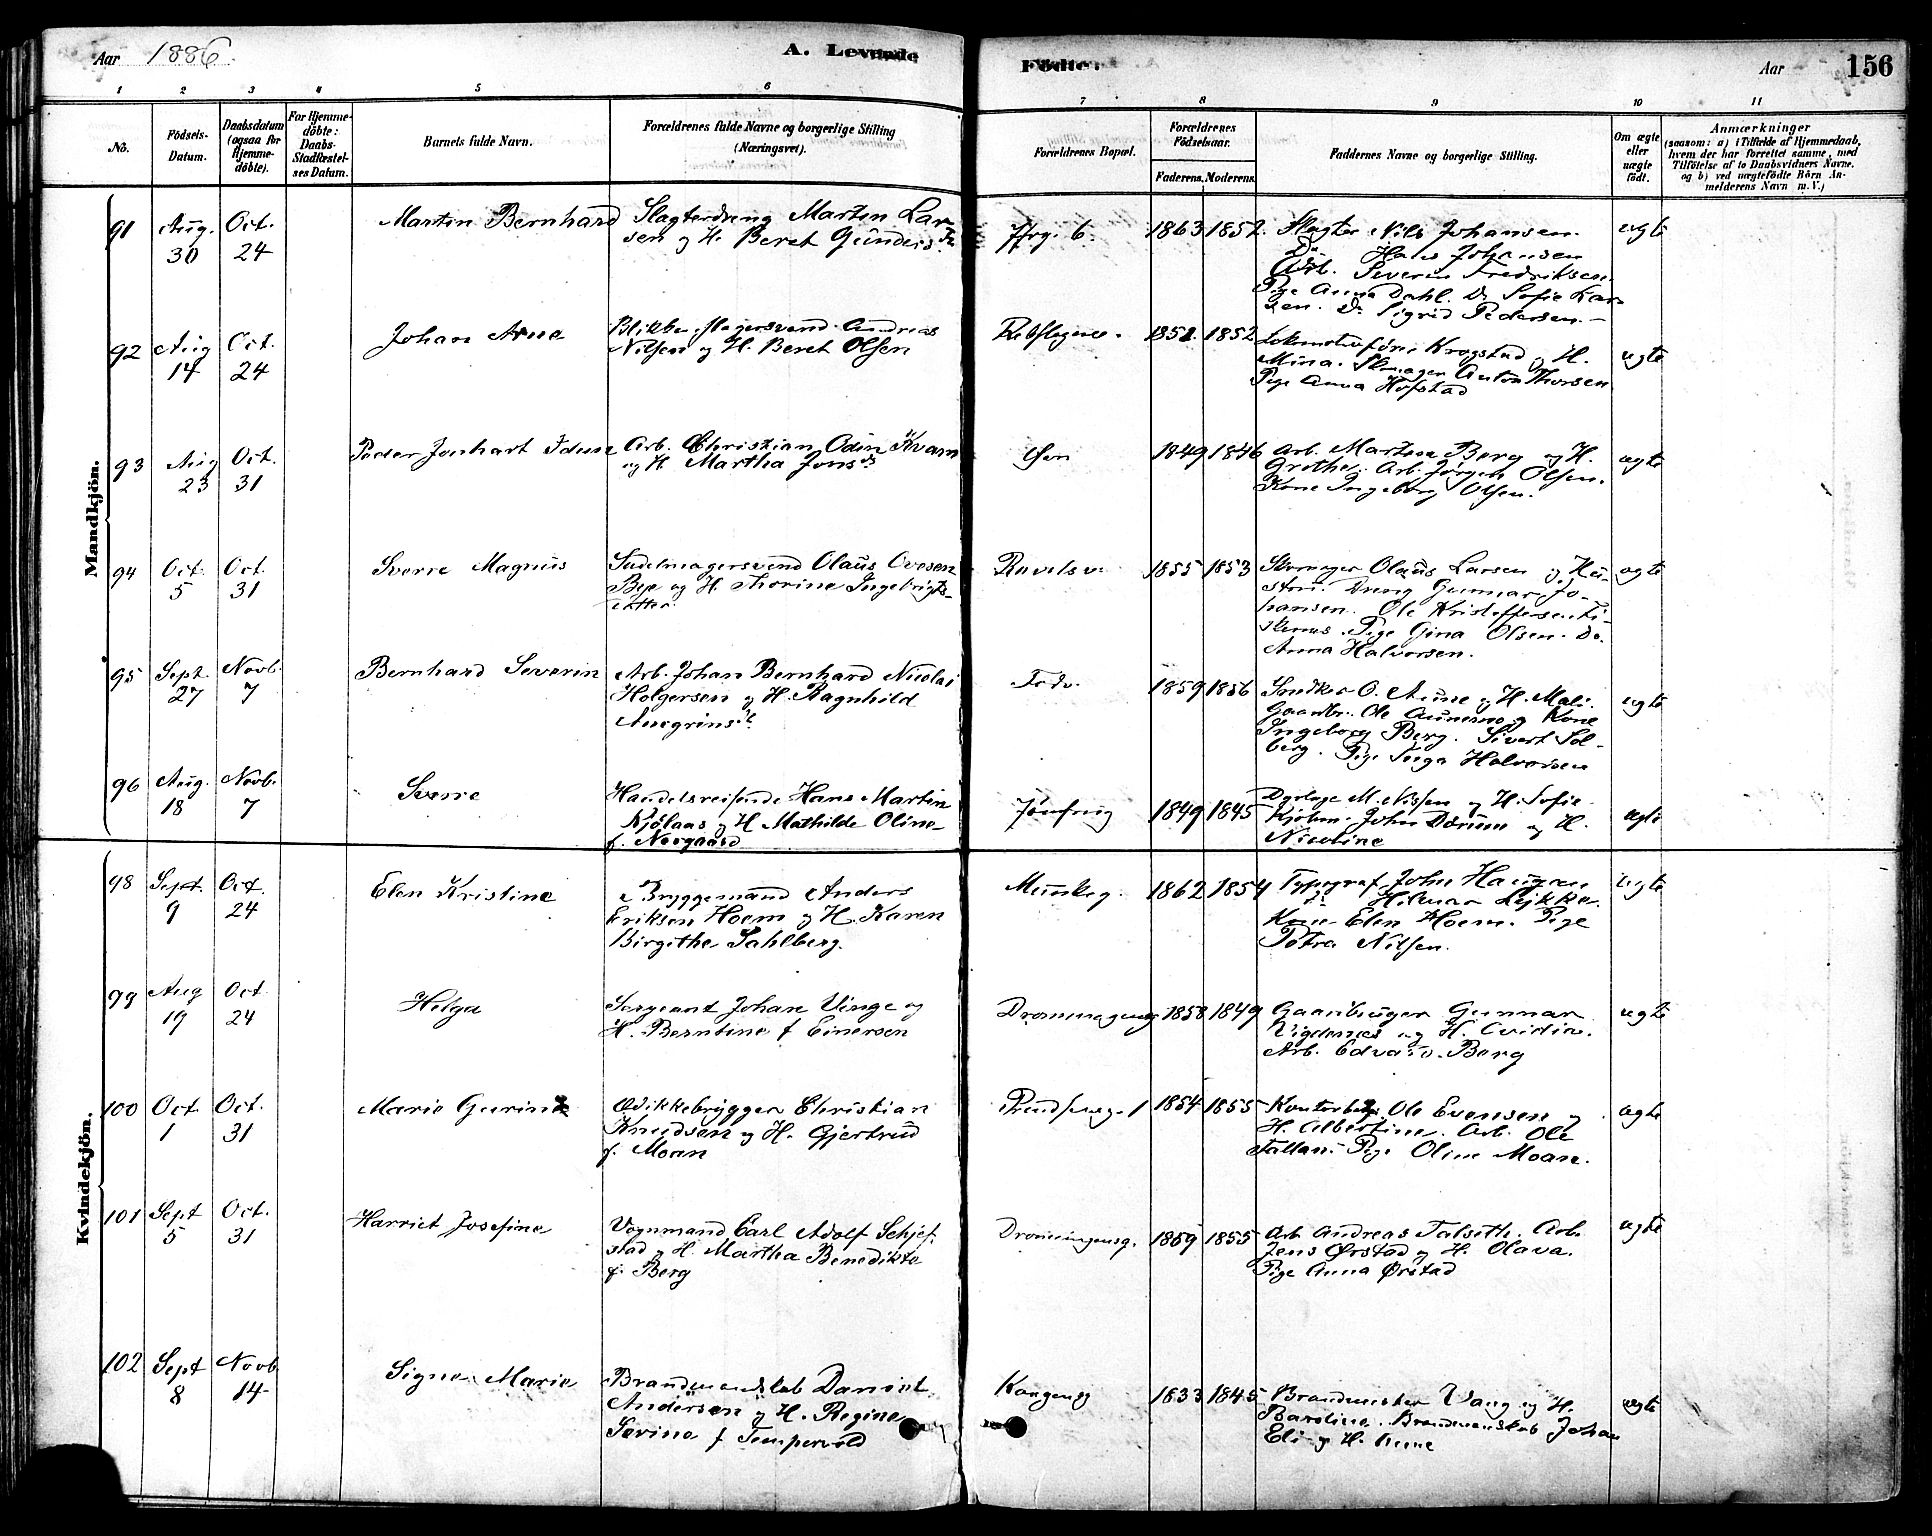 Aar 1886.
A. Levende
Födte.
Aar
156
1 2 3 4 5 6 7 8 9 10 11
No.
Födsels-
Datum.
Daabsdatum
(ogsaa for
Hjemme-
döbte).
For Hjemme-
döbte:
Daabs-
Stadfæstel-
ses Datum.
Barnets fulde Navn.
Forældrenes fulde Navne og borgerlige Stilling
(Næringsvei).
Forældrenes Bopæl.
Forældrenes
Födselsaar.
Faderens. Moderens.
Faddernes Navne og borgerlige Stilling.
Om ægte
eller
uægte
födt.
Anmærkninger
(saasom: a) i Tilfælde af Hjemmedaab,
hvem der har forrettet samme, med
Tilföielse af to Daabsvidners Navne.
og b) ved uægtefödte Börn An-
melderens Navn m. V.)
Mandkjön.
91
Aug.
30
Oct.
24
Martin Bernhard
Slagterdreng Martin Lar-
sen og H. Beret Gunders
1863 1852
Slagter Nils Johansen.
Do Hans Johansen
Arb. Severin Fredriksen
Pige Anna Dahl. Do Sofie Lar-
sen. Do Sigrid Pedersen.
ægte
92
Aug
14
Oct.
24
Johan Arne
Andreas
Nilsen og H. Beret Olsen
1852
Krogstad og H.
Mina. Anton Thorsen
Pige Anna Hofstad
ægte
93
Aug
23
Oct.
31
Peder Jenhart Idun
Arb. Christian Odin Kvam
og H Martha Jons
1849 1846
Arb. Marten Berg og H.
Grethe. Arb. Jörgen Olsen.
Kone Ingeborg Olsen.
ægte
94
Oct.
5
Oct.
31
Sverre Magnus
Sadelmagersvend Olaus Ovesen
og H. Thorine Ingebrigts-
datter.
1855 1853
Skomager Olaus Larsen og Hu-
stru. Dreng Gunnar Jo-
hansen. Ole Kristoffersen
Pige Gina Olsen. Do.
Anna Halvorsen.
ægte
95
Sept
27
Novb.
7
Bernhard Severin
Arb. Johan Bernhard Nicolai
Holgersen og H. Ragnhild
1859 1856
Snedker O. Aune og H. Mali.
Ole Aunemo og Kone
Ingeborg Berg. Sivert Sol-
berg. Pige Inga Halvorsen
ægte
96
Aug.
18
Novb.
7
Sverre
Handelsreisende Hans Martin
Kjölaas og H Mathilde Oline
f. Norgaard
1849 1845
M. Nissen og H. Sofie
John og H.
Nicoline
ægte
Kvindekjön.
98
Sept.
9
Oct.
24
Elen Kristine
Bryggemand Anders
Eriksen Hoem og H. Karen
Birgithe Sahlberg.
Munkeg.
1862 1854
Typograf John Haugan
Do Hilmar Lykke.
Kone Elen Hoem. Pige
Petra Nilsen.
ægte
99
Aug
19
Oct.
24
Helga
Sergeant Johan Vinge og
H. Berntine f Einersen
1858 1849
Gaardbruger Gunnar
og H.
Arb. Edvard Berg
ægte
100
Oct.
1
Oct.
31
Marie Gurine
Eddikkebrygger Christian
Knudsen og H. Gjertrud
f. Moan
1854 1855
Ole Evensen og
H. Albertine. Arb. Ole
Fallan. Pige Oline Moan.
ægte
101
Sept
5
Oct.
31
Harriet Josefine
Vognmand Carl Adolf Schjef-
stad og H. Martha Benedikte
f. Berg
Dronningensg.
1859 1855
Arb Andreas Talseth. Arb.
Jens Ørstad og H. Olava.
Pige Anna Ørstad
ægte
102
Sept
8
Novb
14
Signe Marie
Brandmandskab Daniel
Andersen og H. Regine
Serine f Tempervold
Kongensg
1833 1845
Brandmester Vang og H.
Bardine. Brandmandskab Johan
Eli og H. Anne
ægte